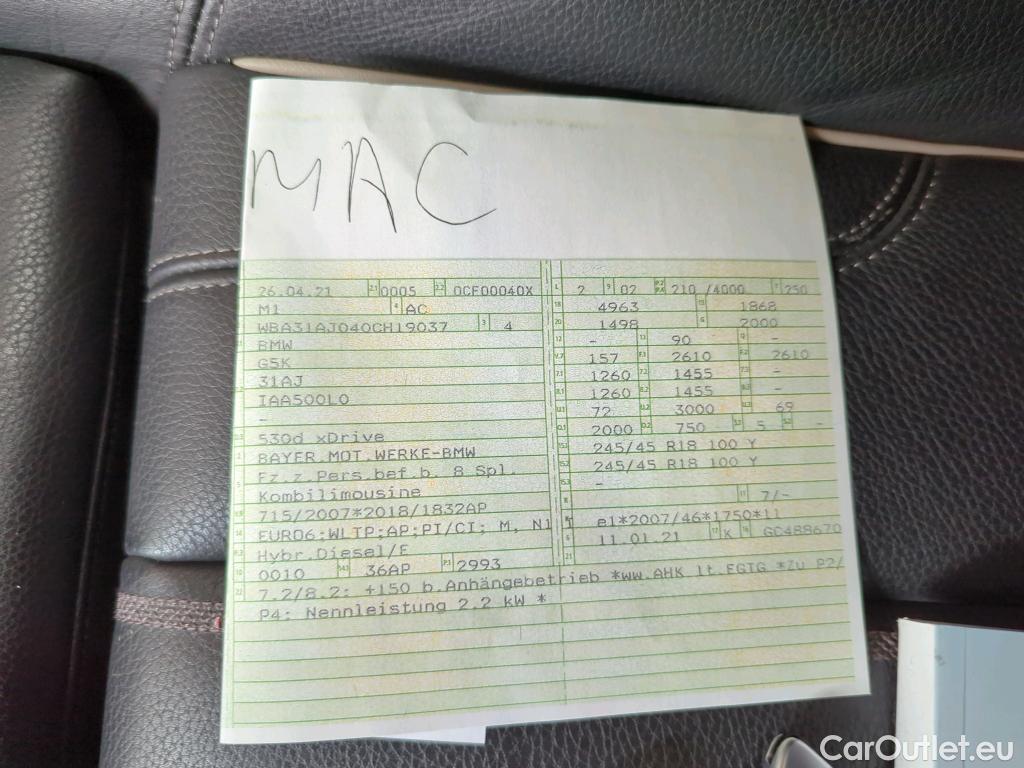 MAC
26.04.21 2.1 0005 2.2 0CF00040X L 2 9 02 P.2 P.4 210 /4000 T 250
M1 4 AC 18 4963 19 1868
WBA31AJ040CH19037 3 4 20 1498 G 2000
BMW 12 - 13 90 Q -
G5K V.7 157 F.1 2610 F.2 2610
31AJ 7.1 1260 7.2 1455 7.3 -
IAA500L0 8.1 1260 8.2 1455 8.3 -
- U.1 72 U.2 3000 U.3 69
530d xDrive O.1 2000 O.2 750 S.1 5 S.2 -
BAYER.MOT.WERKE-BMW 15.1 245/45 R18 100 Y
Fz.z.Pers.bef.b. 8 Spl. 15.2 245/45 R18 100 Y
Kombilimousine 15.3 -
715/2007*2018/1832AP R 11 7/-
EURO6;WLTP;AP;PI/CI; M, N1 K e1*2007/46*1750*11
Hybr.Diesel/E 6 11.01.21 17 K 16 GC488670
10 0010 14.1 36AP P.1 2993 21
22 7.2/8.2: +150 b.Anhängebetrieb *ww.AHK lt.EGTG *Zu P2/
P4: Nennleistung 2.2 kW *
CarOutlet.eu